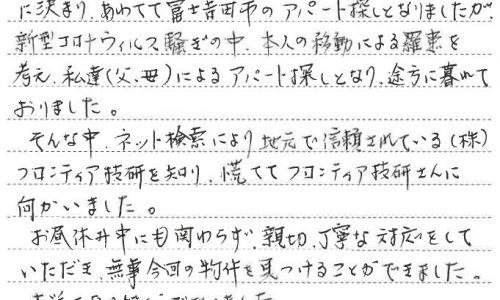 に決まり、あわてて富士吉田市のアパート探しとなりましたが、
新型コロナウィルス騒ぎの中、本人の移動による羅患を
考え、私達(父、母)によるアパート探しとなり、途方に暮れて
おりました。
そんな中、ネット検索により地元で信頼されている(株)
フロンティア技研を知り、慌ててフロンティア技研さんに
向かいました。
お昼休み中にも関わらず、親切、丁寧な対応をして
いただき、無事今回の物件を見つけることができました。